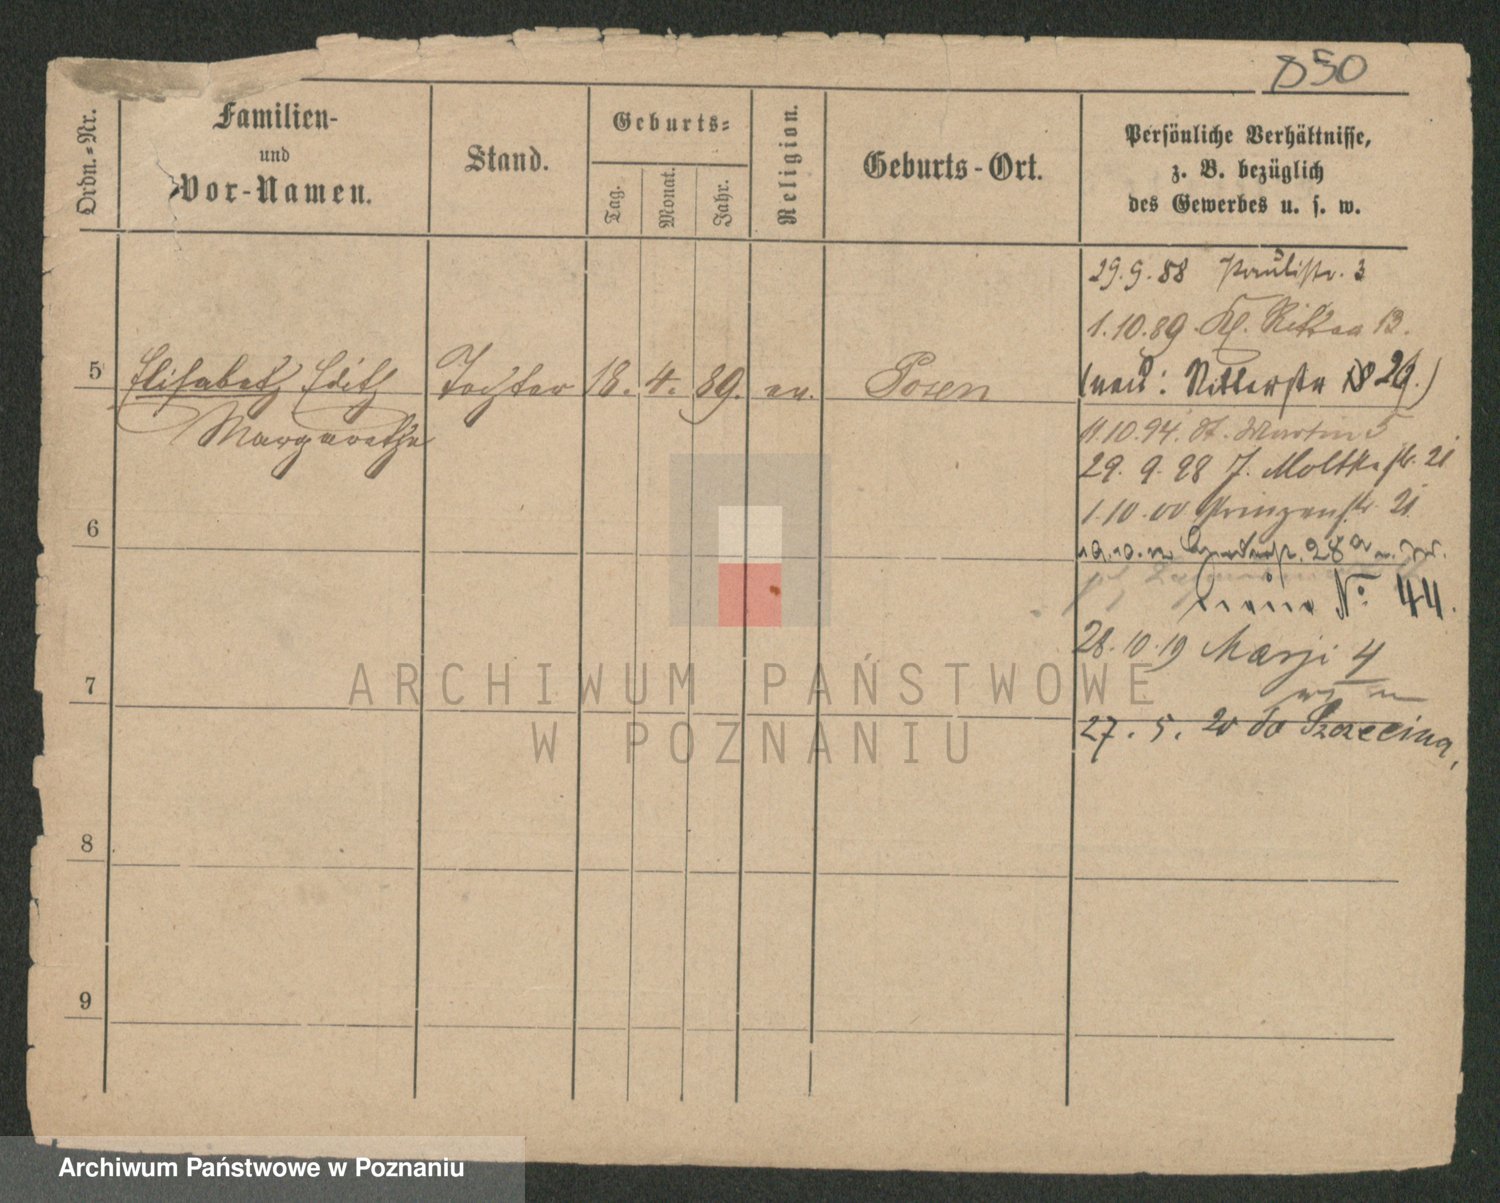 850
Ordn.-Nr.
Familien-
und
Vor-Namen.
Stand.
Geburts-
Tag.
Monat.
Jahr.
Religion.
Geburts-Ort.
Persönliche Verhältnisse,
z. B. bezüglich
des Gewerbes u. s. w.
29.9.88 Paulistr. 3
1.10.89. Kl. Ritter 13.
5 Elisabeth Edith Tochter 18. 4. 89. ev. Posen
(neu: Ritterstr 26.)
Margarethe
11.10.94. St. Martin 5
29. 9. 98 J. Moltkestr. 21
1.10.00 Prinzenstr. 21
6
28a
No. 44.
28.10.19 4
7
27. 5. 20 do Szczecina,
8
9
ARCHIWUM PAŃSTWOWE
W POZNANIU
Archiwum Państwowe w Poznaniu